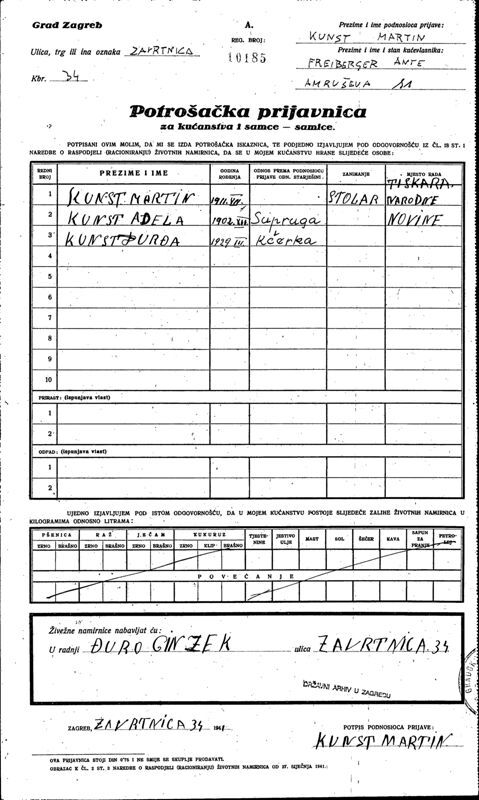 Grad Zagreb
Ulica, trg ili ina oznaka ZAVRTNICA
Kbr. 34
A.
REG. BROJ:
10185
Prezime i ime podnosioca prijave:
KUNST MARTIN
Prezime i ime i stan kućevlasnika:
FREIBERGER ANTE
AMRUŠEVA 11
Potrošačka prijavnica
za kućanstva i samce — samice.
POTPISANI OVIM MOLIM, DA MI SE IZDA POTROŠAČKA ISKAZNICA, TE PODJEDNO IZJAVLJUJEM POD ODGOVORNOŠĆU IZ ČL. 18 ST. 1
NAREDBE O RASPODJELI (RACIONIRANJU) ŽIVOTNIH NAMIRNICA, DA SE U MOJEM KUĆANSTVU HRANE SLIJEDEĆE OSOBE:
REDNI BROJ PREZIME I IME GODINA ROĐENJA ODNOS PREMA PODNOSIOCU PRIJAVE ODN. STARJEŠINI ZANIMANJE MJESTO RADA
TISKARA
1 KUNST MARTIN 1911. VII. STOLAR NARODNE
2 KUNST ADELA 1902. XII. Supruga NOVINE
3 KUNST ĐURĐA 1929 IV. Kćerka
4
5
6
7
8
9
10
PRIRAST: (ispunjava vlast)
1
2
ODPAD: (ispunjava vlast)
1
2
UJEDNO IZJAVLJUJEM POD ISTOM ODGOVORNOŠĆU, DA U MOJEM KUĆANSTVU POSTOJE SLIJEDEĆE ZALIHE ŽIVOTNIH NAMIRNICA U
KILOGRAMIMA ODNOSNO LITRAMA:
PŠENICA RAŽ JEČAM KUKURUZ TJESTENINE JESTIVO ULJE MAST SOL ŠEĆER KAVA SAPUN ZA PRANJE PETROLEJ
ZRNO BRAŠNO ZRNO BRAŠNO ZRNO BRAŠNO ZRNO KLIP BRAŠNO
POVEĆANJE
Živežne namirnice nabavljat ću:
U radnji ĐURO GINZEK ulica ZAVRTNICA 34
DRŽAVNI ARHIV U ZAGREBU
ZAGREB, ZAVRTNICA 34 1941
POTPIS PODNOSIOCA PRIJAVE:
KUNST MARTIN
OVA PRIJAVNICA STOJI DIN 0'75 I NE SMIJE SE SKUPLJE PRODAVATI.
OBRAZAC K ČL. 2 ST. 3 NAREDBE O RASPODJELI (RACIONIRANJU) ŽIVOTNIH NAMIRNICA OD 27. SIJEČNJA 1941.